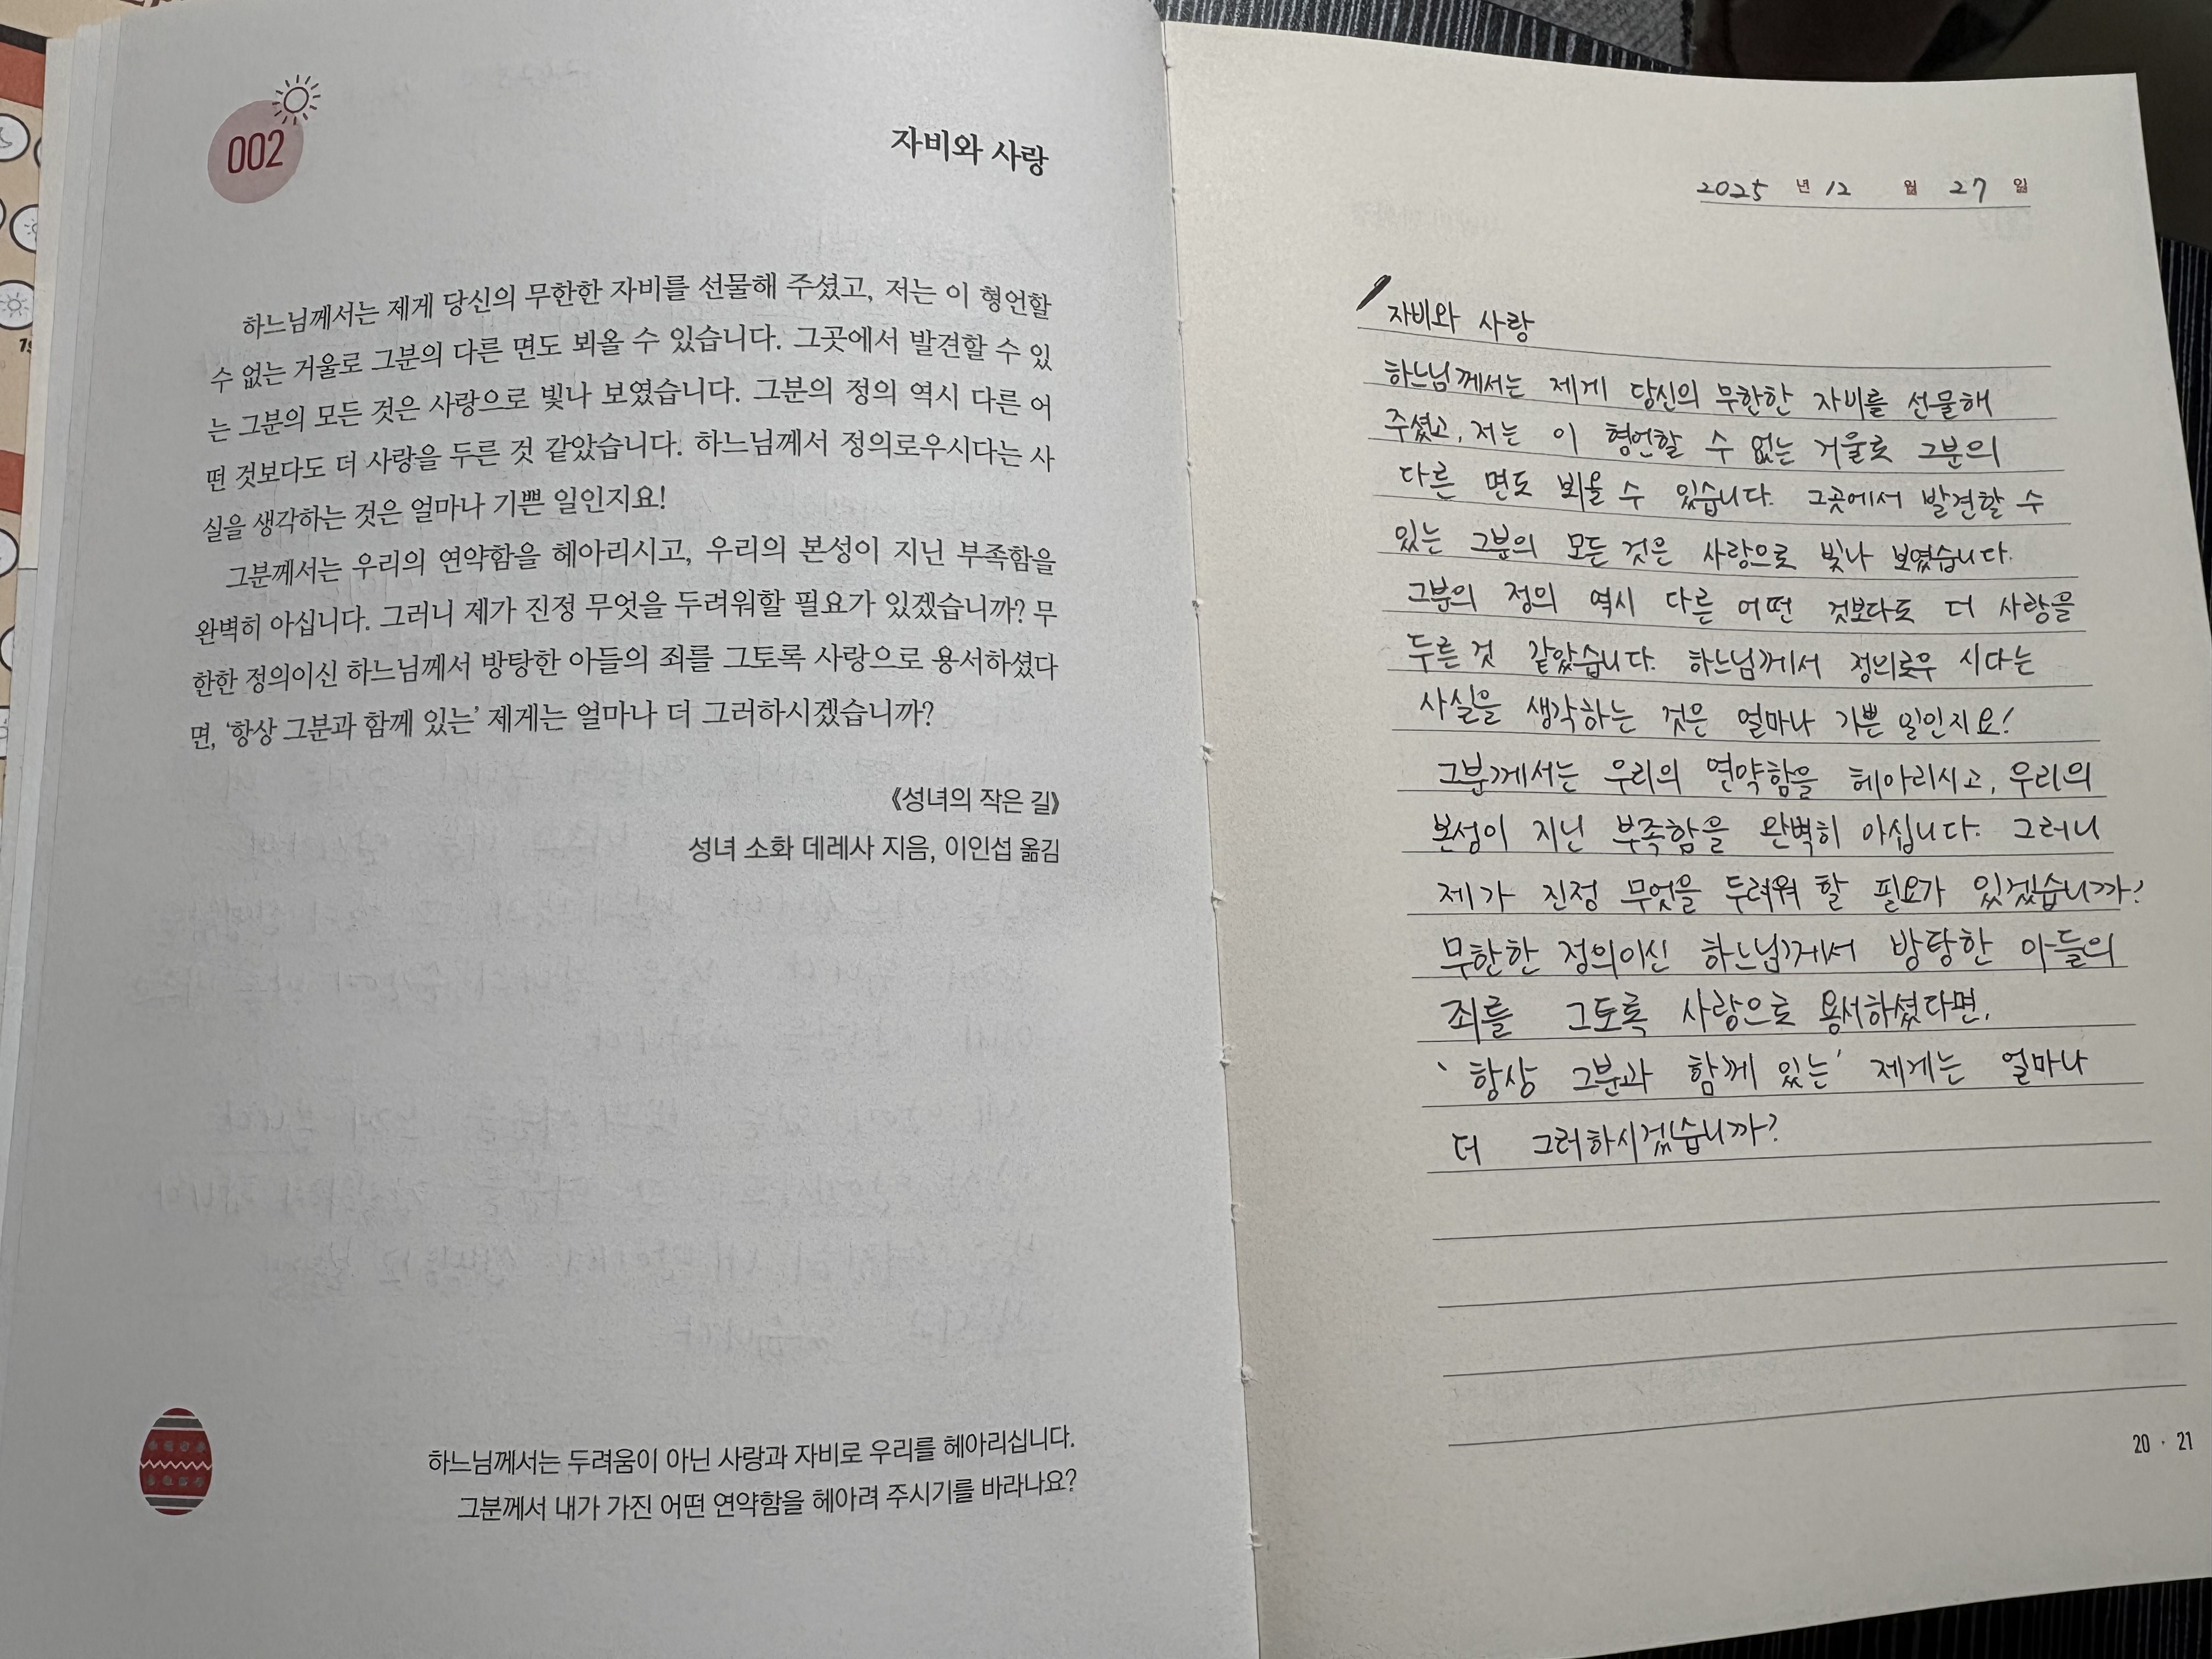 002
자비와 사랑
하느님께서는 제게 당신의 무한한 자비를 선물해 주셨고, 저는 이 형언할
수 없는 거울로 그분의 다른 면도 뵈올 수 있습니다. 그곳에서 발견할 수 있
는 그분의 모든 것은 사랑으로 빛나 보였습니다. 그분의 정의 역시 다른 어
떤 것보다도 더 사랑을 두른 것 같았습니다. 하느님께서 정의로우시다는 사
실을 생각하는 것은 얼마나 기쁜 일인지요!
그분께서는 우리의 연약함을 헤아리시고, 우리의 본성이 지닌 부족함을
완벽히 아십니다. 그러니 제가 진정 무엇을 두려워할 필요가 있겠습니까? 무
한한 정의이신 하느님께서 방탕한 아들의 죄를 그토록 사랑으로 용서하셨다
면, ‘항상 그분과 함께 있는’ 제게는 얼마나 더 그러하시겠습니까?
《성녀의 작은 길》
성녀 소화 데레사 지음, 이인섭 옮김
하느님께서는 두려움이 아닌 사랑과 자비로 우리를 헤아리십니다.
그분께서 내가 가진 어떤 연약함을 헤아려 주시기를 바라나요?
2025 년 12 월 27 일
자비와 사랑
하느님께서는 제게 당신의 무한한 자비를 선물해
주셨고, 저는 이 형언할 수 없는 거울로 그분의
다른 면도 뵈올 수 있습니다. 그곳에서 발견할 수
있는 그분의 모든 것은 사랑으로 빛나 보였습니다.
그분의 정의 역시 다른 어떤 것보다도 더 사랑을
두른 것 같았습니다. 하느님께서 정의로우 시다는
사실을 생각하는 것은 얼마나 기쁜 일인지요!
그분께서는 우리의 연약함을 헤아리시고, 우리의
본성이 지닌 부족함을 완벽히 아십니다. 그러니
제가 진정 무엇을 두려워 할 필요가 있겠습니까?
무한한 정의이신 하느님께서 방탕한 아들의
죄를 그토록 사랑으로 용서하셨다면,
‘항상 그분과 함께 있는’ 제게는 얼마나
더 그러하시겠습니까?
20 · 21